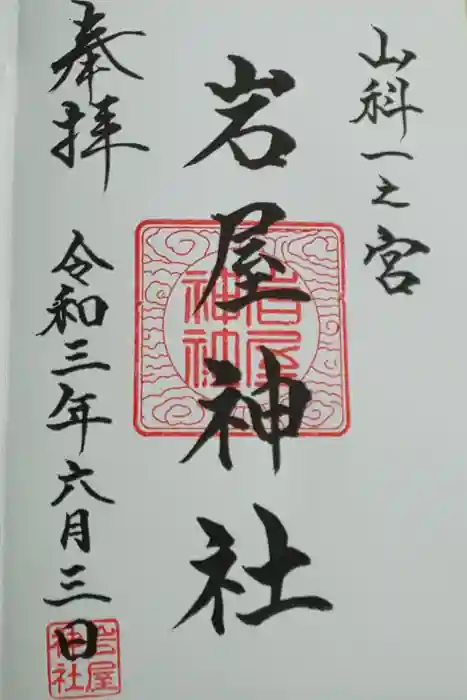 山科一之宮
岩屋神社
奉拝
令和三年六月三日
岩屋
神社
岩屋
神社